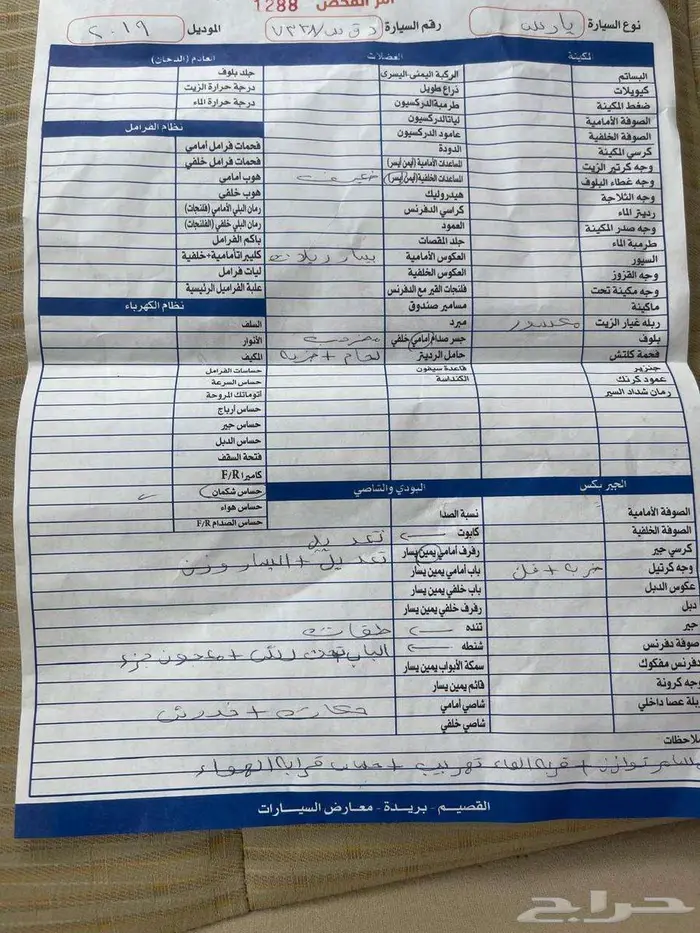 أمر الفحص 1288
نوع السيارة يارس رقم السيارة الموديل ٢٠١٩
المكينة
البساتم
كيويلات
ضغط المكينة
الصوفة الأمامية
الصوفة الخلفية
كرسي المكينة
وجه كرتير الزيت
وجه غطاء البلوف
وجه الثلاجة
رديتر الماء
وجه صدر المكينة
طرمبة الماء
السيور
وجه القزوز
وجه مكينة تحت
ماكينة
ربله غيار الزيت
بلوف
فحمة كلتش
جنزير
عمود كرنك
رمان شداد السير
العضلات
الركبة اليمنى-اليسرى
ذراع طويل
طرمبة الدركسيون
لياتالدركسيون
عامود الدركسيون
الدودة
المساعدات الأمامية (أيمن أيسر)
المساعدات الخلفية (أيمن أيسر) ضعيفه
هيدروليك
كراسي الدفرنس
العمود
جلد المقصات
العكوس الأمامية يسار
العكوس الخلفية
فلنجات القير مع الدفرنس
مسامير صندوق
مبرد
جسر صدام أمامي خلفي
حامل الرديتر لحام + ضربه
قاعدة سيفون
الكنداسة
العادم (الدخان)
جلد بلوف
درجة حرارة الزيت
درجة حرارة الماء
نظام الفرامل
فحمات فرامل أمامي
فحمات فرامل خلفي
هوب أمامي
هوب خلفي
رمان البلي الأمامي (فلنجات)
رمان البلي خلفي (الفلنجات)
باكم الفرامل
كليبراتأمامية+خلفية
ليات فرامل
علبة الفراميل الرئيسية
نظام الكهرباء
السلف
الأنوار
المكيف
حساسات الفرامل
حساس السرعة
أتوماتك المروحة
حساس أرباج
حساس جير
حساس الدبل
فتحة السقف
كاميرا F/R
حساس شكمان
حساس هواء
حساس الصدام F/R
الجير بكس
الصوفة الأمامية
الصوفة الخلفية
كرسي جير
وجه كرتيل ضربه +
عكوس الدبل
دبل
جير
صوفة دفرنس
دفرنس مفكوك
وجه كرونة
بلة عصا داخلي
البودي والشاصي
نسبة الصدا
كابوت تعديل
رفرف أمامي يمين يسار تعديل + اليسار وزن
باب أمامي يمين يسار
باب خلفي يمين يسار
رفرف خلفي يمين يسار
تنده طقات
شنطه + معجون جزء
سمكة الأبواب يمين يسار
قائم يمين يسار
شاصي أمامي حكات +
شاصي خلفي
ملاحظات
+ قربه الماء تهريب + حساس الهواء
القصيم - بريدة - معارض السيارات
حراج